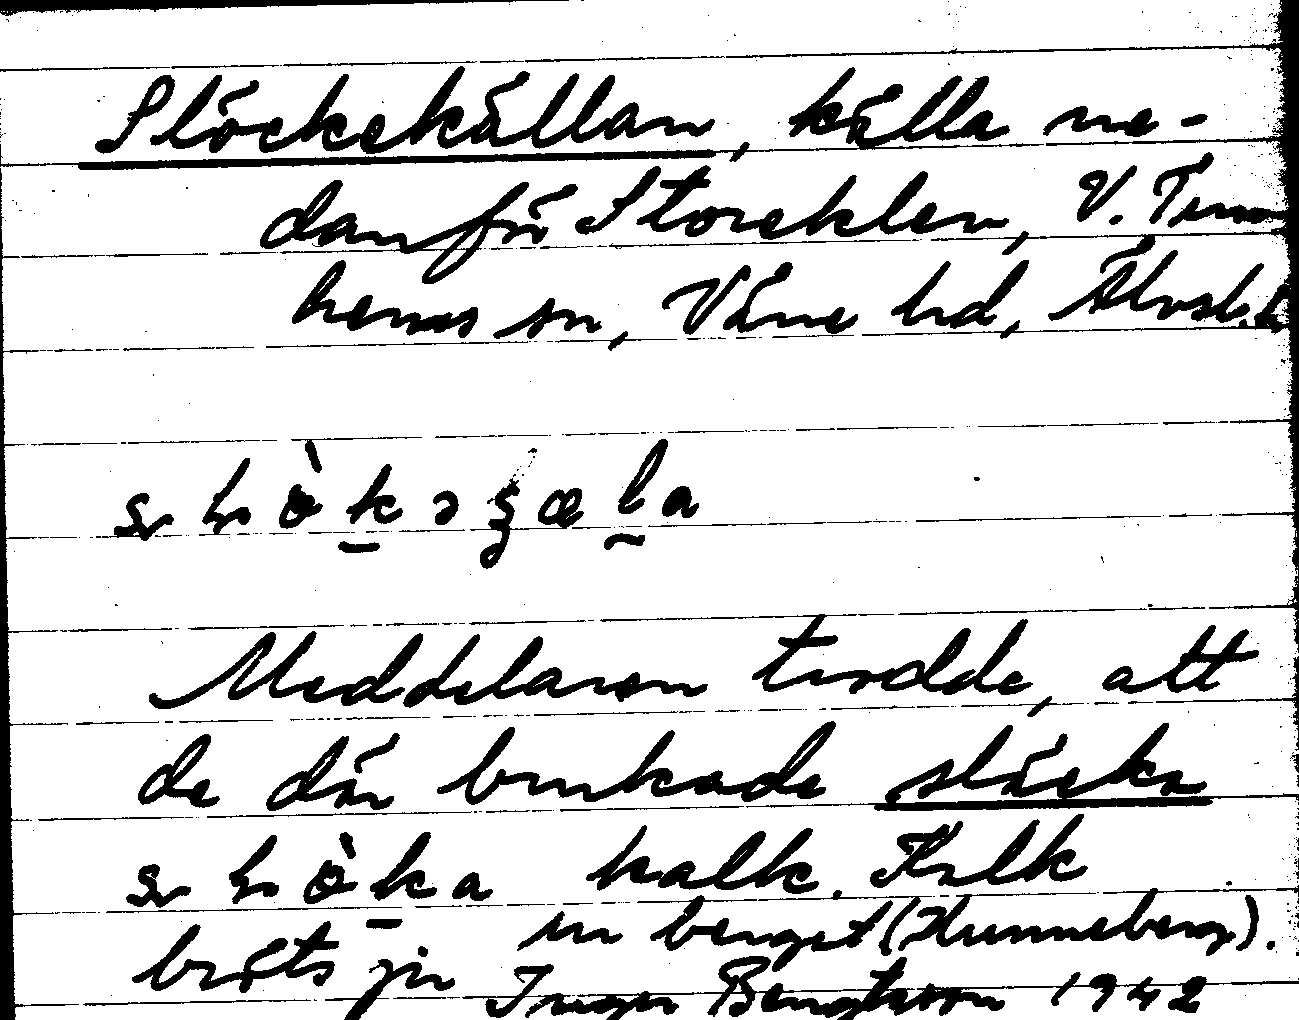 Slöckekällan, källa ne-
danför Storeklev, V. Tun-
hems sn, Väne hd, Älvsb. l.
Meddelaren trodde, att
de där brukade släcka
kalk. Kalk
bröts ju ur berget (Hunneberg).
Inger Bengtsson 1942